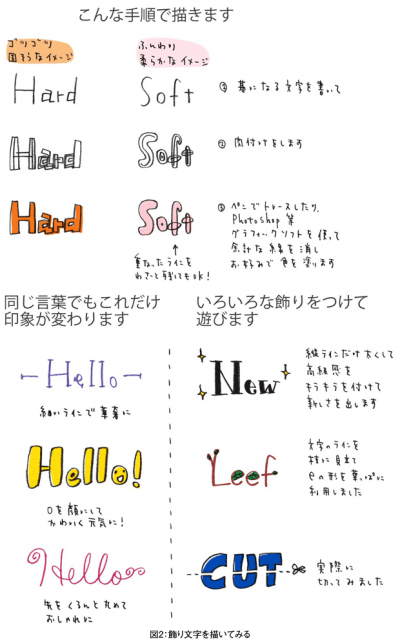 こんな手順で描きます
ゴツゴツ
固そうなイメージ
ふんわり
柔らかなイメージ
Hard
Soft
① 基になる文字を書いて
Hard
Soft
② 肉付けをします
Hard
Soft
③ ペンでトレースしたり、
Photoshop 等
グラフィックソフトを使って
余計な線を消し
お好みで色を塗ります
重なったラインを
わざと残してもOK!
同じ言葉でもこれだけ
印象が変わります
いろいろな飾りをつけて
遊びます
Hello
細いラインで華奢に
Hello!
Oを顔にして
かわいく元気に!
Hello
先をくるんと丸めて
おしゃれに
New
縦ラインだけ太くして
高級感を
キラキラを付けて
新しさを出します
Leef
文字のラインを
枝に見立て
eの形を葉っぱに
利用しました
CUT
実際に
切ってみました
図2:飾り文字を描いてみる